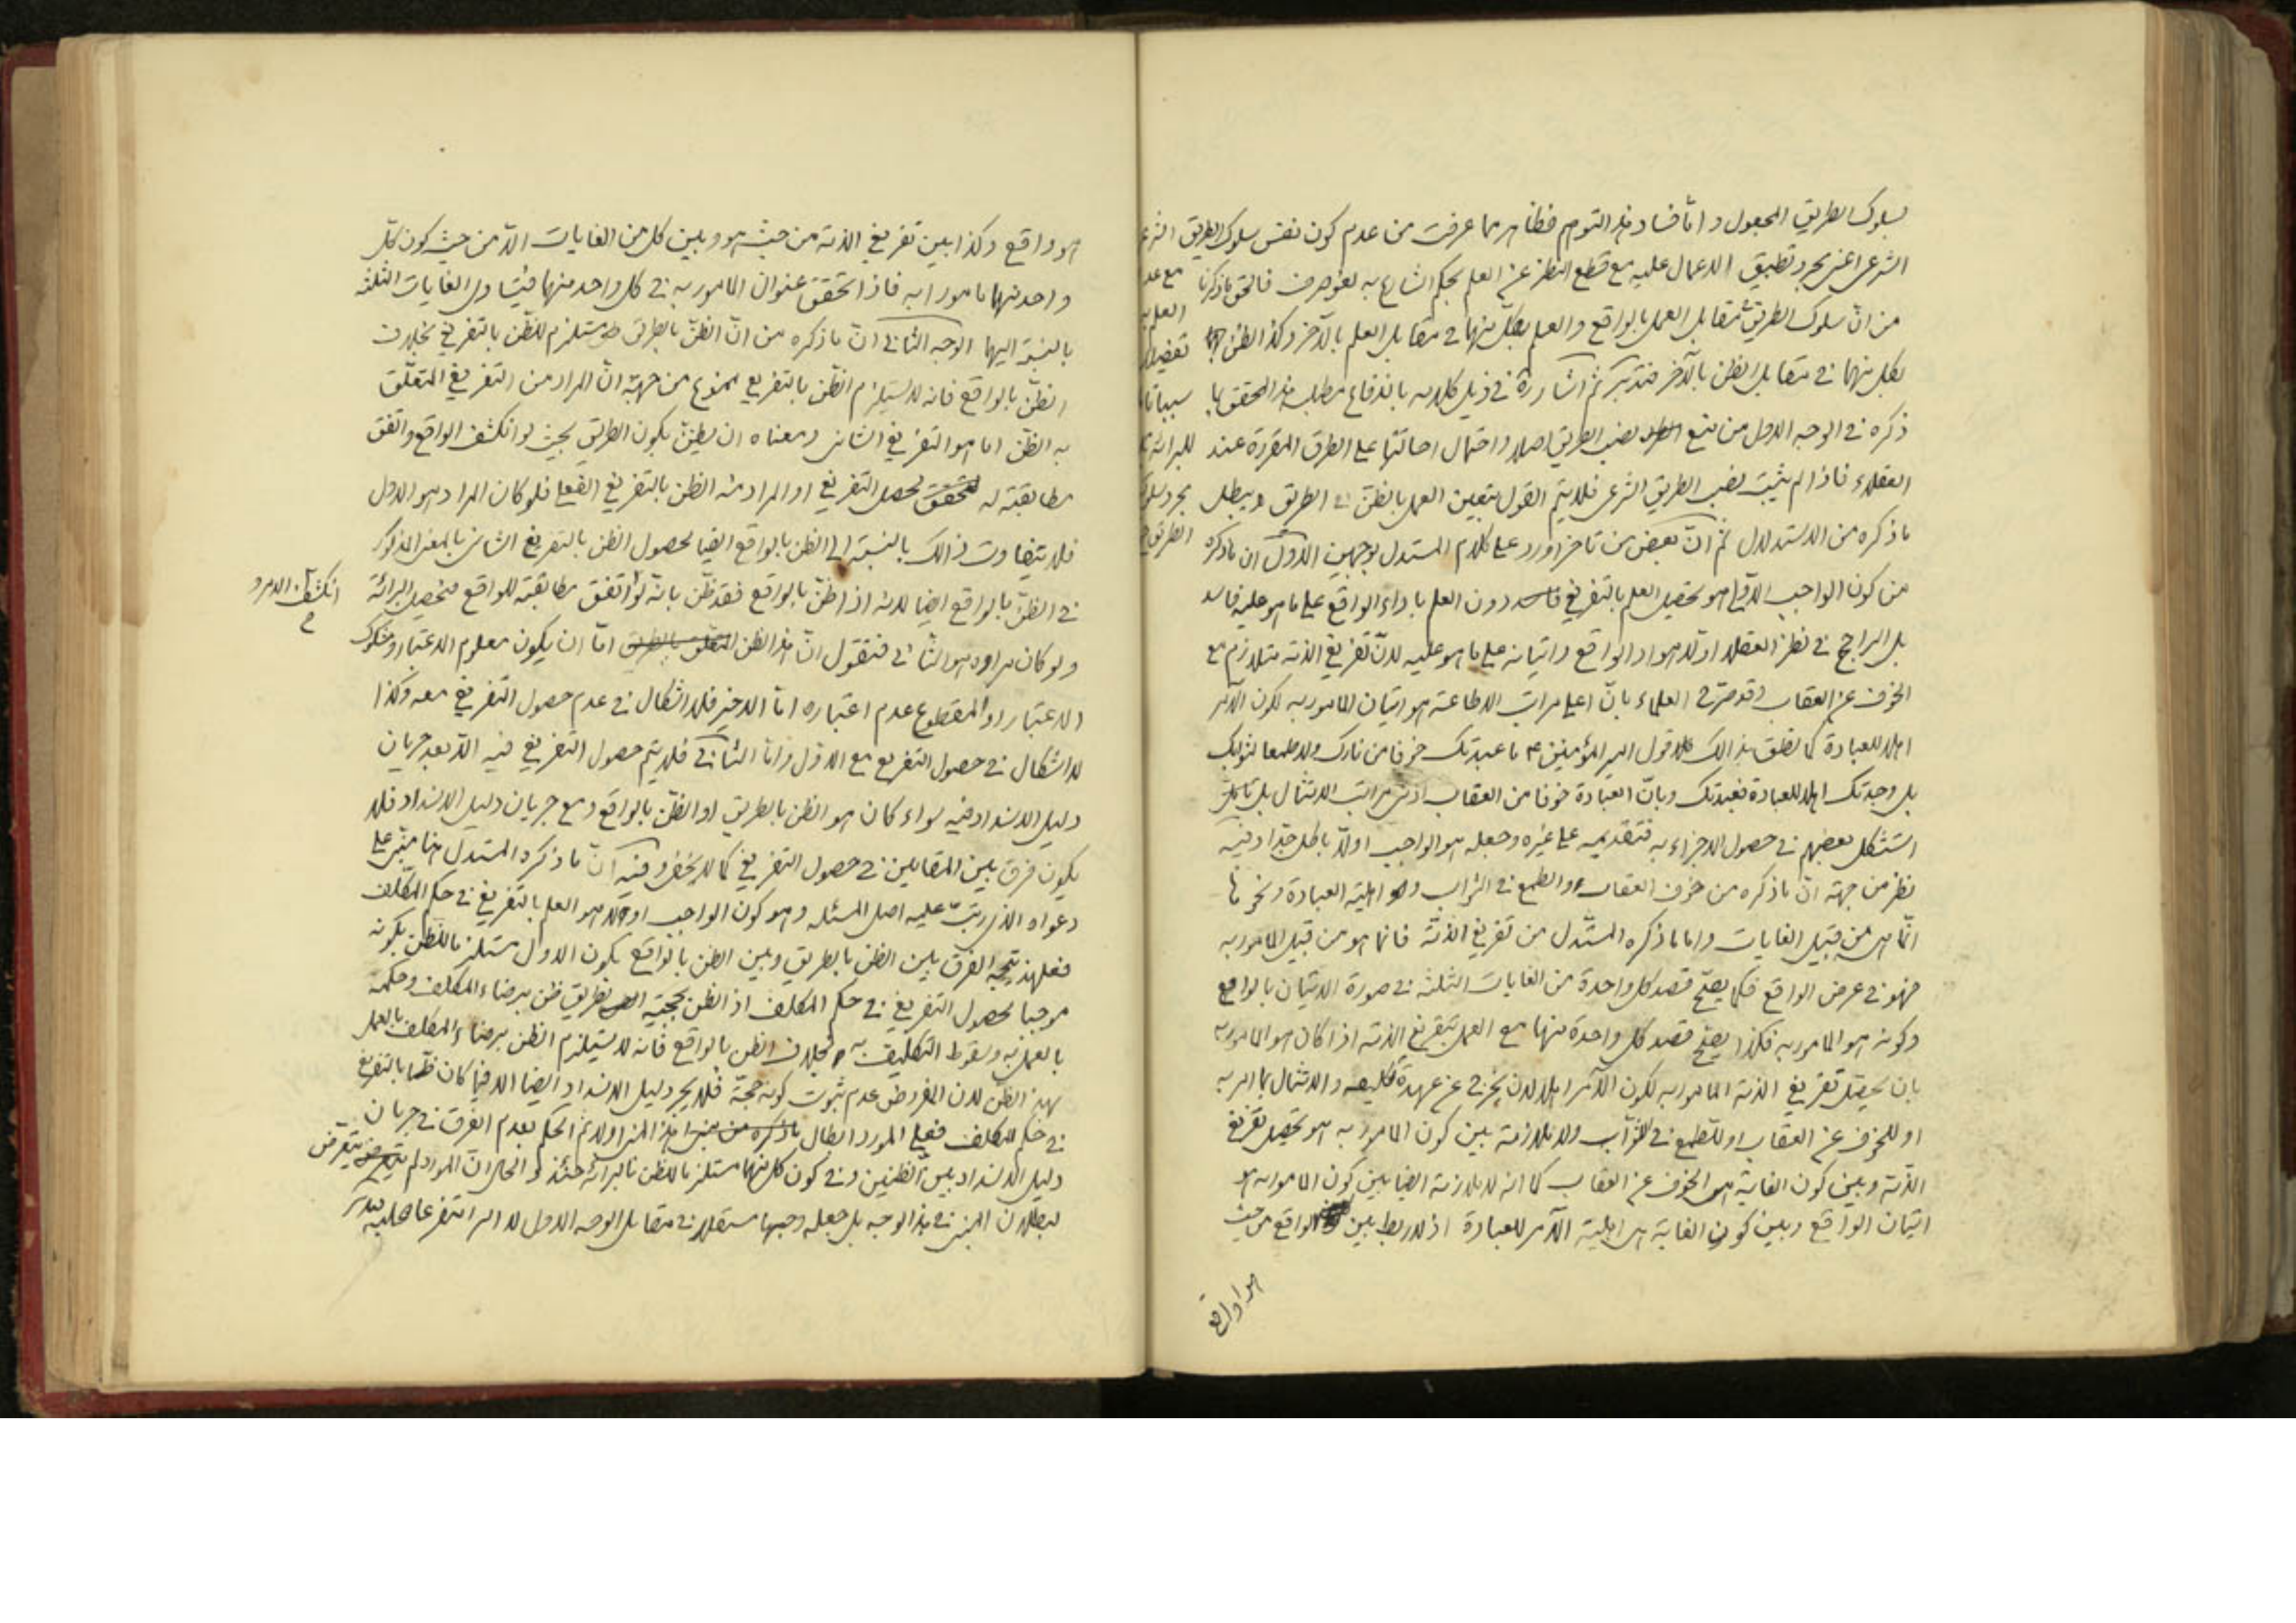 بسلوك الطريق المجعول و امّا فساد هذا التوهم فظاهر مما عرفت من عدم كون نفس سلوك الطريق
الشرعى اعنى مجرد تطبيق الاعمال عليه مع قطع النظر عن العلم بحكم الشارع به لغو صرف فالحق ما ذكرنا
من انّ سلوك الطريق فى مقابل العمل بالواقع و العلم بكل منهما فى مقابل العلم بالآخر و كذا الظن
بكل منهما فى مقابل الظن بالآخر فتدبر ثم اشار ره فى ذيل كلامه باندفاع مطلب هذا المحقق بما
ذكره فى الوجه الاول من منع نصب الطريق اصلا و احتمال احالتها على الطرق المقررة عند
العقلاء فاذا لم يثبت نصب الطريق الشرعى فلا يتم القول بتعيين العمل بالظن فى الطريق و يبطل
ما ذكره من الاستدلال ثم انّ بعض من تاخر اورد على كلام المستدل بوجهين الاول ان ما ذكره
من كون الواجب الاولى هو تحصيل العلم بالتفريغ دون العلم باداء الواقع على ما هو عليه فاسد
بل الراجح فى نظر العقل اولا هو اداء الواقع و اتيانه على ما هو عليه لانّ تفريغ الذمة متلازم مع
الخوف عن العقاب و قد صرّح العلماء بانّ اعلى مراتب الاطاعة هو اتيان المامور به لكون الآمر
اهلا للعبادة كما نطق بذالك قول امير المؤمنين ع ما عبدتك خوفا من نارك و لا طمعا لثوابك
بل وجدتك اهلا للعبادة فعبدتك و بانّ العبادة خوفا من العقاب ادنى مراتب الامتثال بل
استشكل بعضهم فى حصول الاجزاء به فتقديمه على غيره و جعله هو الواجب اولا باطل جدّا و فيه
نظر من جهة انّ ما ذكره من خوف العقاب و الطمع فى الثواب و اهلية العبادة و نحوها
انّما هى من قبيل الغايات و اما ما ذكره المستدل من تفريغ الذمّة فانما هو من قبيل المامور به
فهو فى عرض الواقع فكما يصحّ قصد كل واحدة من الغايات الثلثة فى صورة الاتيان بالواقع
و كونه هو المامور به فكذا يصحّ قصد كل واحدة منها مع العمل بتفريغ الذمة اذا كان هو المامور به
بان يحصل تفريغ الذمة المامور به لكون الآمر اهلا لان يخرج عن عهدة تكليفه و الامتثال بما امر به
او للخوف عن العقاب او للطمع فى الثواب و لا ملازمة بين كون المامور به هو تحصيل تفريغ
الذمّة و بين كون الغاية هو الخوف عن العقاب كما انه لا ملازمة ايضا بين كون المامور به هو
اتيان الواقع و بين كون الغاية هى اهلية الآمر للعبادة اذ لا ربط بين الواقع من حيث
هو واقع
هو واقع و كذا بين تفريغ الذمة من حيث هو و بين كل من الغايات الّا من حيث كون كلّ
واحد منهما مامورا به فاذا تحقق عنوان المامور به فى كل واحد منهما فيتساوى الغايات الثلثة
بالنسبة اليهما الوجه الثانى انّ ما ذكره من انّ الظنّ بالطريق مستلزم للظّن بالتفريغ بخلاف
الظنّ بالواقع فانه لا يستلزم الظّن بالتفريغ ممنوع من جهة انّ المراد من التفريغ المتعلّق
به الظّن اما هو التفريغ الشانى و معناه ان يظنّ بكون الطريق بحيث لو انكشف الواقع و اتفق
مطابقته له لحصل التفريغ او المراد منه الظن بالتفريغ الفعلى فلو كان المراد هو الاول
فلا يتفاوت ذالك بالنسبة الى الظن بالواقع ايضا لحصول الظن بالتفريغ الشانى بالمعنى المذكور
فى الظنّ بالواقع ايضا لانه اذا ظنّ بالواقع فقد ظّن بانّه لو اتفق مطابقته للواقع فيحصل البرائة
انكشف الامر و
و لو كان مراده هو الثانى فنقول انّ هذا الظن المتعلق بالطريق امّا ان يكون معلوم الاعتبار او مشكوك
الاعتبار او المقطوع عدم اعتباره امّا الاخير فلا اشكال فى عدم حصول التفريغ معه و كذا
لا اشكال فى حصول التفريع مع الاول و امّا الثانى فلا يتم حصول التفريغ فيه الّا بعد جريان
دليل الانسداد فيه سواء كان هو الظن بالطريق او الظّن بالواقع و مع جريان دليل الانسداد فلا
يكون فرق بين المقامين فى حصول التفريغ كما لا يخفى و فيه انّ ما ذكره المستدل هنا مبنى على
دعواه الذى رتب عليه اصل المسئلة و هو كون الواجب اولا هو العلم بالتفريغ فى حكم المكلّف
فعلى هذا يتّجه الفرق بين الظن بالطريق و بين الظن بالواقع بكون الاول مستلزما للظن بكونه
موجبا لحصول التفريغ فى حكم المكلف اذ الظن بحجية الطريق ظن برضاء المكلف و حكمه
بالعمل به و سقوط التكليف به بخلاف الظن بالواقع فانه لا يستلزم الظن برضاء المكلف بالعمل
بهذ الظنّ لان المفروض عدم ثبوت كونه حجّة فلا يجرى دليل الانسداد ايضا الا فيما كان ظنّا بالتفريغ
فى حكم المكلف فعلى المورد ابطال هذا المبنى اولا ثم الحكم بعدم الفرق فى جريان
دليل الانسداد بين الظنين و فى كون كل منهما مستلزما للظن بالبرائة حينئذ و الحال انّ المورد لم يتعرّض
لبطلان المبنى فى هذا الوجه بل جعله وجها مستقلا فى مقابل الوجه الاول لا امرا متفرعا عليه